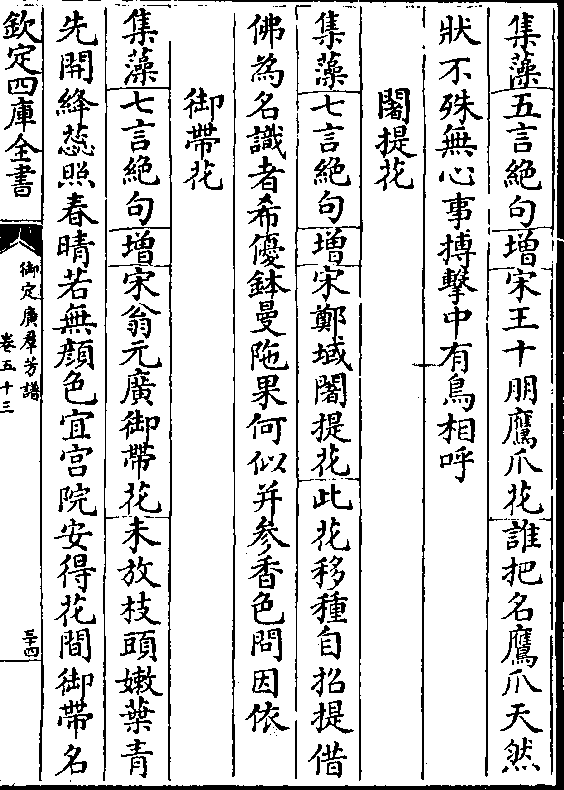 集藻五言絶句增宋王十朋鷹爪花誰把名鷹爪天然
狀不殊無心事搏擊中有鳥相呼
闍提花
集藻七言絶句增宋鄭域闍提花此花移種自招提借
佛為名識者希優鉢曇陁果何似并參香色問因依
御帶花
集藻七言絶句增宋翁元廣御帶花未放枝頭嫩葉青
先開絳蕊照春晴若無顔色宜宫院安得花間御帶名
欽定四庫全書
御定廣羣芳譜
卷五十三
三十四